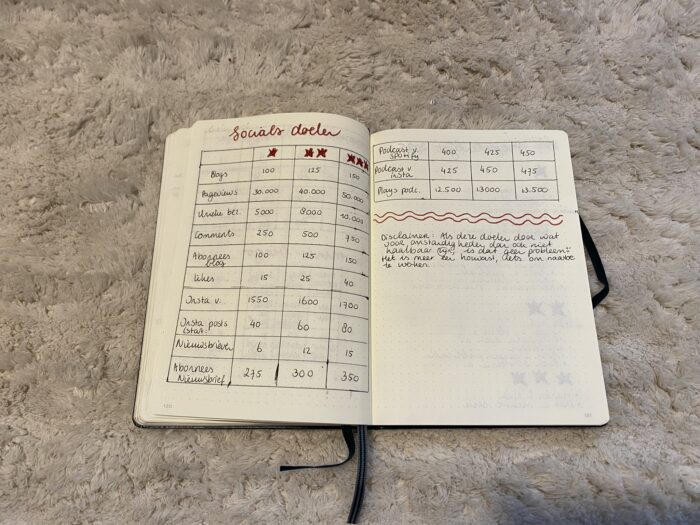 Socials doelen
Blogs 100 125 150
Pageviews 30.000 40.000 50.000
Unieke bez. 5000 8000 10.000
Comments 250 500 750
Abonnees blog 100 125 150
Likes 15 25 40
Insta v. 1550 1600 1700
Insta posts 40 60 80
Nieuwsbrieven 6 12 15
Abonnees Nieuwsbrief 275 300 350
120
Podcast v. Spotify 400 425 450
Podcast v insta 425 450 475
Plays podc. 12.500 13000 13.500
Disclaimer: Als deze doelen door wat
voor omstandigheden dan ook niet
haalbaar zijn, is dat geen probleem!
Het is meer een houvast, iets om naartoe
te werken.
121